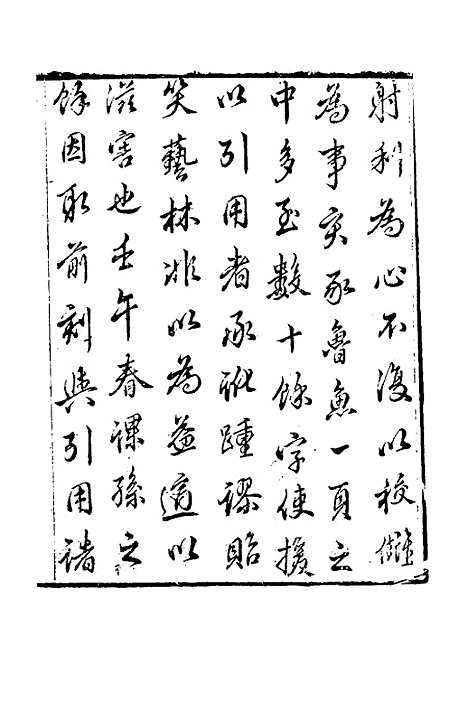 射利為心不復以校讎
為事亥豕魯魚一頁之
中多至數十餘字使援
以引用者承訛踵謬貽
笑藝林非以為益適以
滋害也壬午春課孫之
餘因取前刻與引用諸